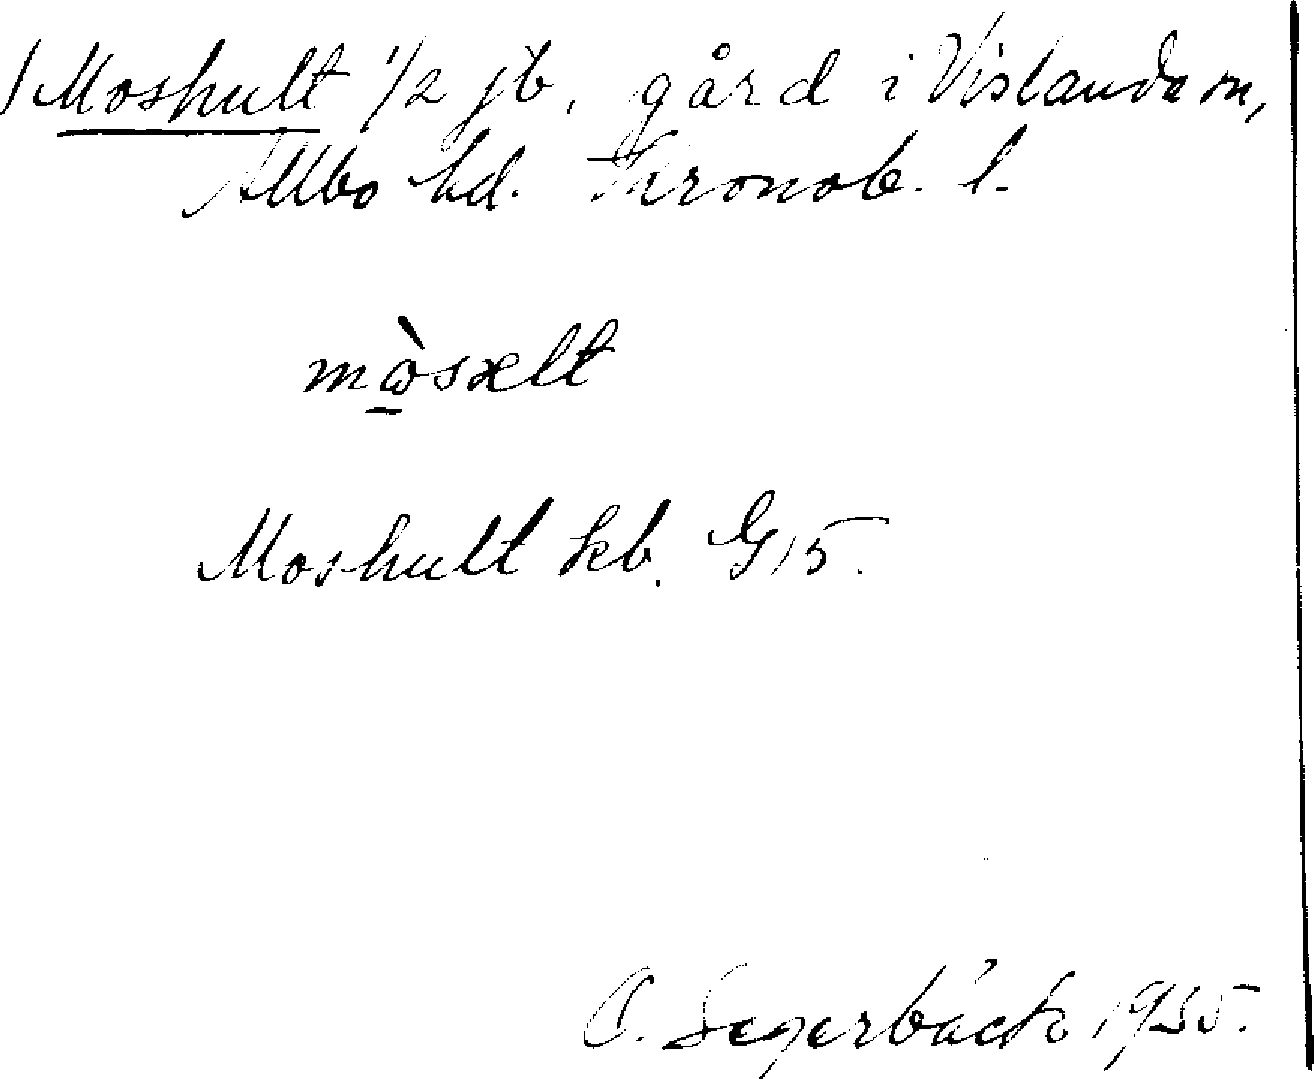 Moshult 1/2 jb, gård i Vislanda sn,
Allbo hd. Kronob. l.
mòsælt
Moshult kb. G15.
O. Segerbäck 1955.